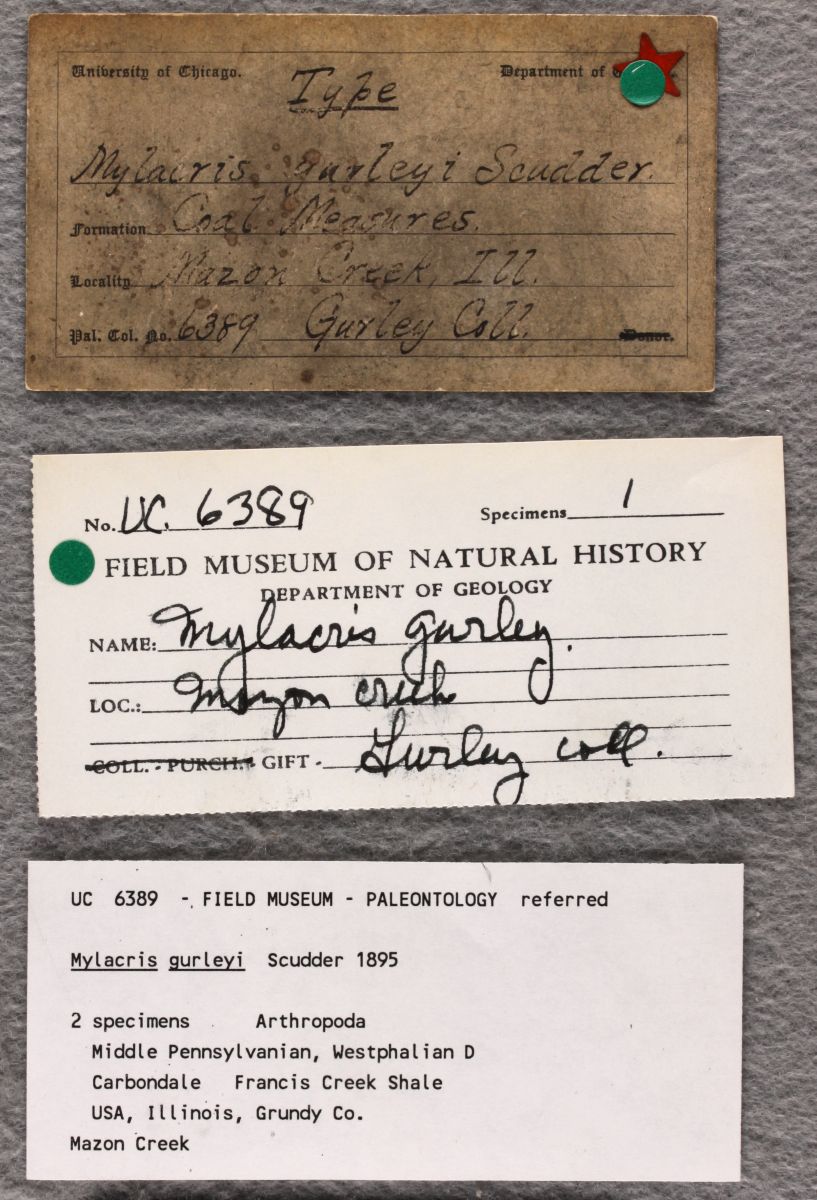 University of Chicago. Department of
Type
Mylacris gurleyi Scudder.
Formation Coal Measures.
Locality Mazon Creek, Ill.
Pal. Col. No. 6389 Gurley Coll. Donor.
No. UC. 6389 Specimens 1
FIELD MUSEUM OF NATURAL HISTORY
DEPARTMENT OF GEOLOGY
NAME: Mylacris gurley.
LOC.: Mazon creek
COLL. - PURCH. - GIFT - Gurley coll.
UC 6389 - FIELD MUSEUM - PALEONTOLOGY referred
Mylacris gurleyi Scudder 1895
2 specimens Arthropoda
Middle Pennsylvanian, Westphalian D
Carbondale Francis Creek Shale
USA, Illinois, Grundy Co.
Mazon Creek